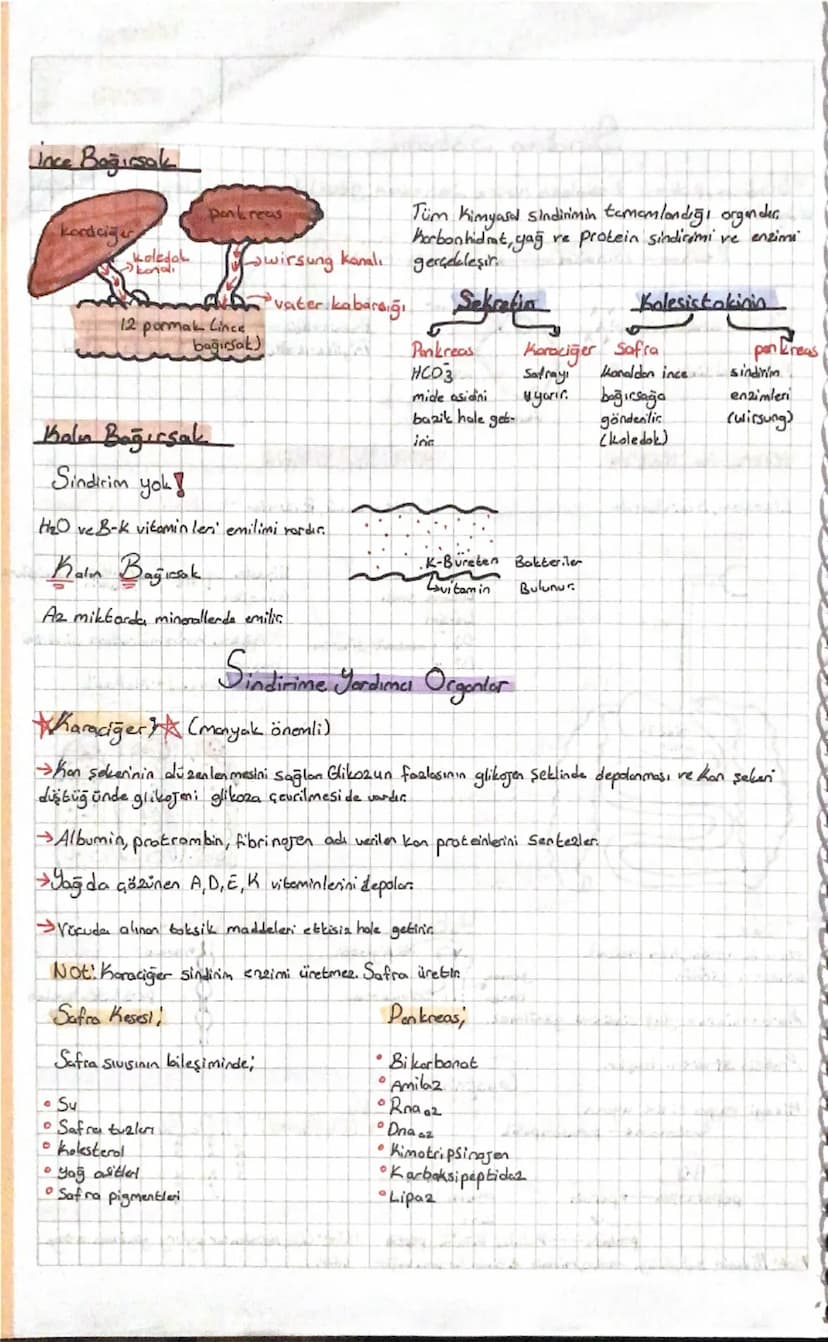 İnce Bağırsak
karaciğer
pankreas
koledok
kanalı
wirsung kanalı
vater kabarcığı
12 parmak (ince
bağırsak)
Tüm kimyasal sindirimin tamamlandığı organdır.
Karbonhidrat, yağ ve protein sindirimi ve enzimi
gerçekleşir.
Sekretin
Kolesistokinin
Pankreas
HCO3⁻
mide asidini
bazik hale get-
irir.
Karaciğer
Safrayı
uyarır.
Safra
kanaldan ince
bağırsağa
gönderilir.
(koledok)
pankreas
sindirim
enzimleri
(wirsung)
Kalın Bağırsak
Sindirim yok!
H2O ve B-K vitaminleri emilimi vardır.
Kalın Bağırsak
Az miktarda minerallerde emilir.
K-B üreten Bakteriler
vitamin Bulunur.
Sindirime Yardımcı Organlar
Karaciğer; (manyak önemli)
→Kan şekerinin düzenlenmesini sağlar. Glikozun fazlasının glikojen şeklinde depolanması ve kan şekeri
düştüğünde glikojeni glikoza çevrilmesi de vardır.
→Albumin, protrombin, fibrinojen adı verilen kan proteinlerini sentezler.
→Yağda çözünen A, D, E, K vitaminlerini depolar.
→Vücuda alınan toksik maddeleri etkisiz hale getirir.
Not: Karaciğer sindirim enzimi üretmez. Safra üretir.
Safra Kesesi;
Safra sıvısının bileşiminde;
• Su
• Safra tuzları
• Kolesterol
• Yağ asitleri
• Safra pigmentleri
Pankreas;
• Bikarbonat
• Amilaz
• Rnaaz
• Dnaaz
• Kimotripsinojen
• Karboksipeptidaz
• Lipaz